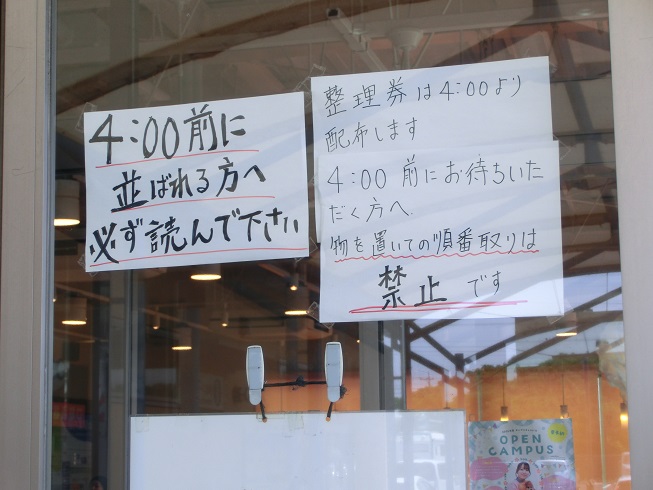 4:00前に
並ばれる方へ
必ず読んで下さい
整理券は4:00より
配布します
4:00 前にお待ちいた
だく方へ
物を置いての順番取りは
禁止です
OPEN
CAMPUS